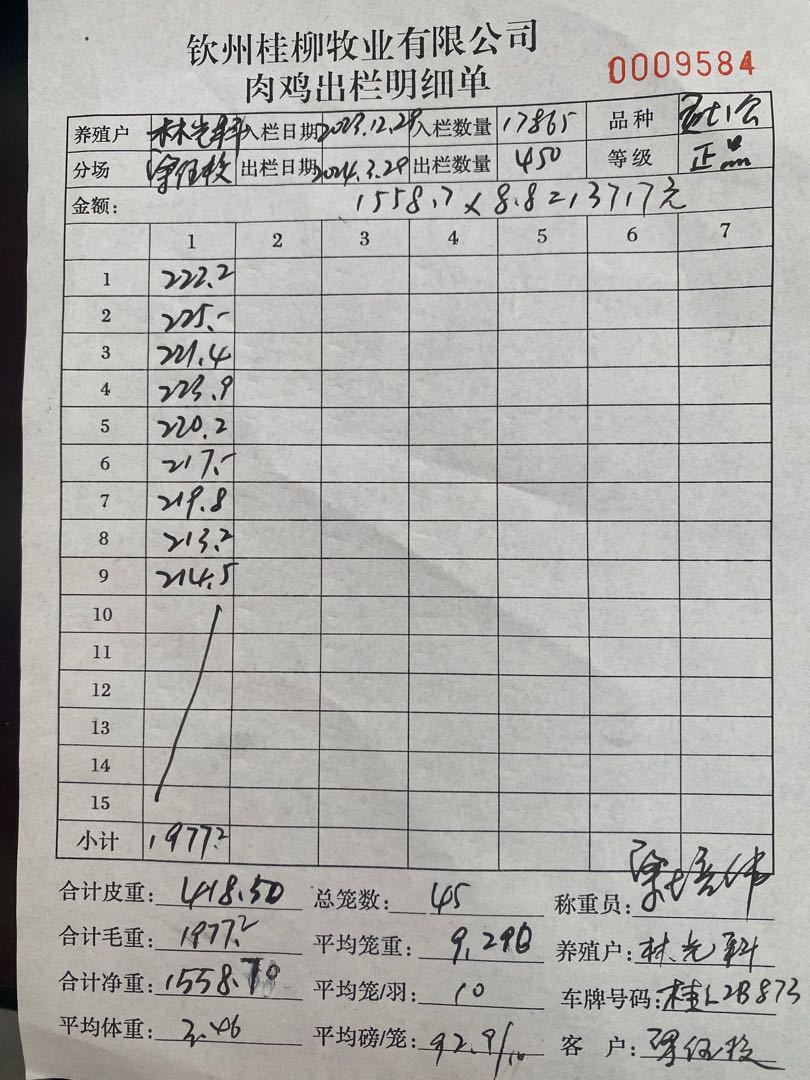 钦州桂柳牧业有限公司
肉鸡出栏明细单
0009584
养殖户 林光科 入栏日期 2023.12.29 入栏数量 17865 品种
分场 出栏日期 2024.3.29 出栏数量 450 等级 正品
金额: 1558.7 x 8.8=13717元
1 2 3 4 5 6 7
1 222.2
2 225.-
3 221.4
4 223.9
5 220.2
6 217.-
7 219.8
8 213.2
9 214.5
10
11
12
13
14
15
小计 1977.2
合计皮重: 418.50 总笼数: 45 称重员:
合计毛重: 1977.2 平均笼重: 9.290 养殖户: 林光科
合计净重: 1558.70 平均笼/羽: 10 车牌号码: 桂L2B873
平均体重: 3.46 平均磅/笼: 92.9/10 客户: